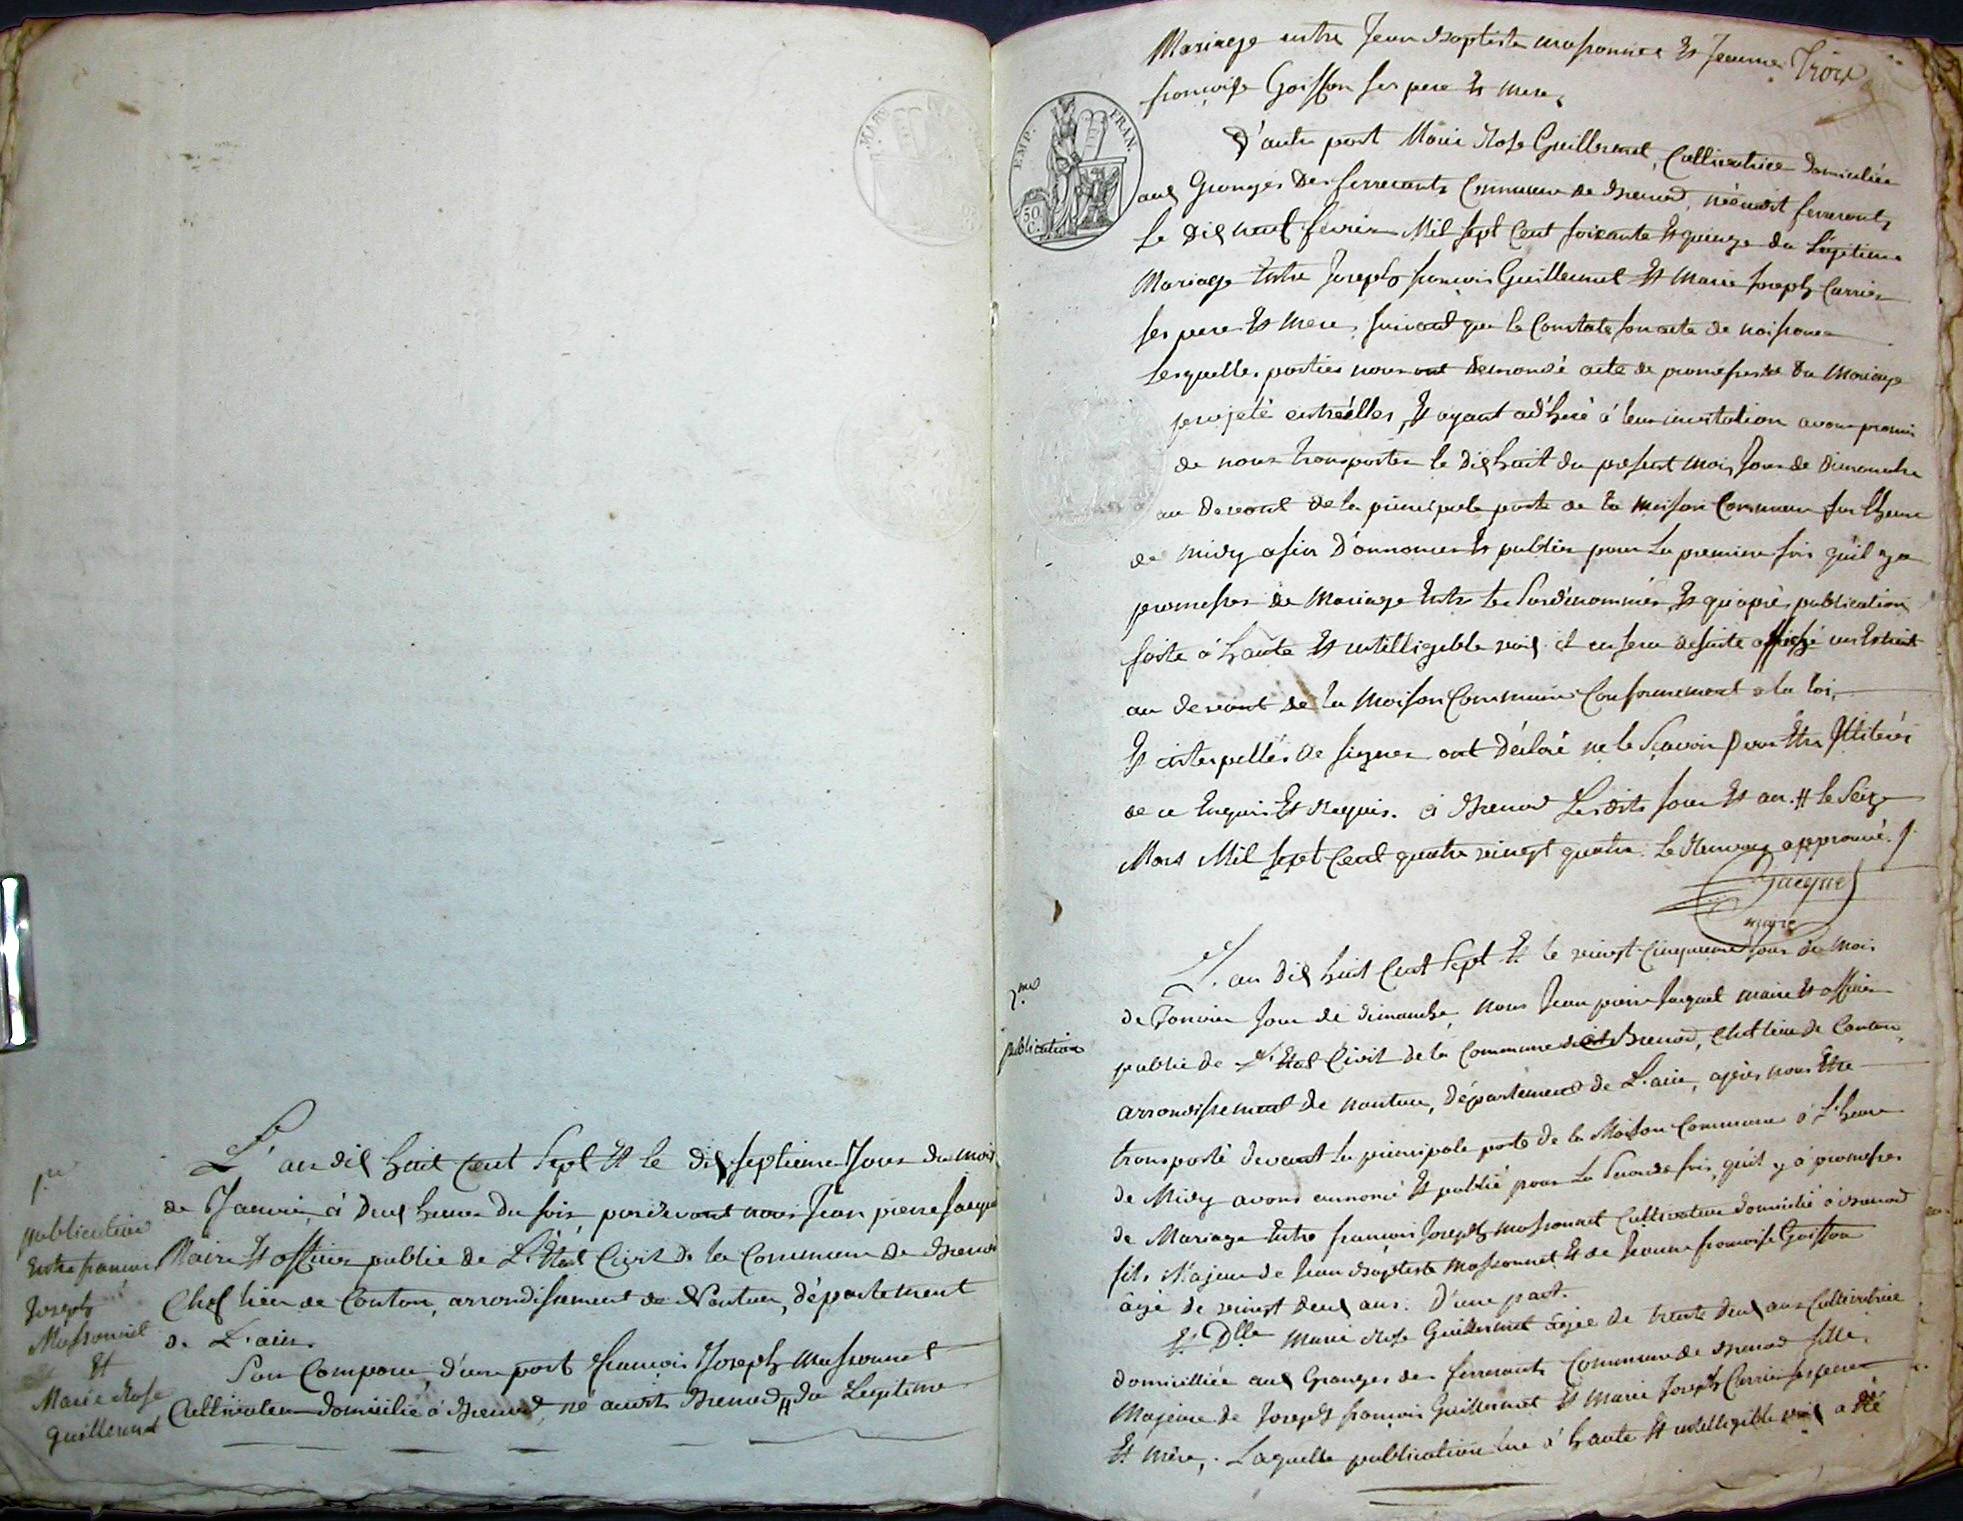 1re
publication
Entre françois
Joseph
Massonnet
Et
Marie Rose
Guillermet
L'an dix huit Cent Sept Et le dix septieme Jour du mois
de Janvier, à deux heures du soir, pardevant nous Jean pierre Jacquet
Maire Et officier public de L'Etat Civil de la Commune de Brenod
Chef lieu de Canton, arrondissement de Nantua, département
de L'ain.
Son Comparu, d'une part françois Joseph Massonnet
Cultivateur domicilié à Brenod, né audit Brenod # du Legitime
MARY
Trois
Mariage entre Jean Baptiste massonnet Et Jeanne
françoise Goiffon ses pere Et mere,
EMP. FRAN.
50 C.
D'autre part Marie Rose Guillermet, Cultivatrice domiciliée
aux Granges des ferrerants Commune de Brenod, née audit ferrerants
Le dix neuf fevrier Mil sept Cent soixante Et quinze du Légitime
Mariage Entre Joseph françois Guillermet Et Marie Joseph Carrier
ses pere Et mere, suivant que le Constate son acte de naissance
Lesquelles parties nous ont demandé acte de promesses du Mariage
projeté entre elles, Et ayant adhéré à leur invitation avons promis
de nous transporter le dix huit du present mois, Jour de dimanche
au devant de la principale porte de la maison Commune sur l'heure
de midy afin d'annoncer Et publier pour La premiere fois qu'il y a
promesses de Mariage Entre les Surdénommés, Et qu'après publication
faite à haute Et intelligible voix il en sera desuite affiché un Extrait
au devant de la Maison Commune Conformement a la loi,
Et interpellés de signer ont déclaré ne le Sçavoir pour Etre Illitérés
de ce Enquis Et Requis. à Brenod Lesdits Jour Et an. # le Seize
Mars Mil sept Cent quatre vingt quatre. Le Renvoy approuvé.
Jacquet
maire
2me
publication
L'an dix huit Cent Sept Et le vingt Cinquieme Jour du mois
de Janvier Jour de dimanche, nous Jean pierre Jacquet maire Et officier
public de L'Etat Civil de la Commune de Brenod, Chef lieu de Canton,
arrondissement de nantua, département de L'ain, après nous Etre
transporté devant La principale porte de la Maison Commune à L'heure
de Midy avons annoncé Et publié pour La Seconde fois, qu'il y a promesses
de Mariage Entre françois Joseph Massonnet Cultivateur domicilié à Brenod
fils Majeur de Jean Baptiste Massonnet Et de Jeanne françoise Goiffon
âgé de vingt deux ans. D'une part.
Et Dlle Marie Rose Guillermet âgée de trente deux ans Cultivatrice
domiciliée aux Granges des ferrerants Commune de Brenod fille
Majeure de Joseph françois Guillermet Et Marie Joseph Carrier ses pere
Et mère, Laquelle publication lue à haute Et intelligible voix a été